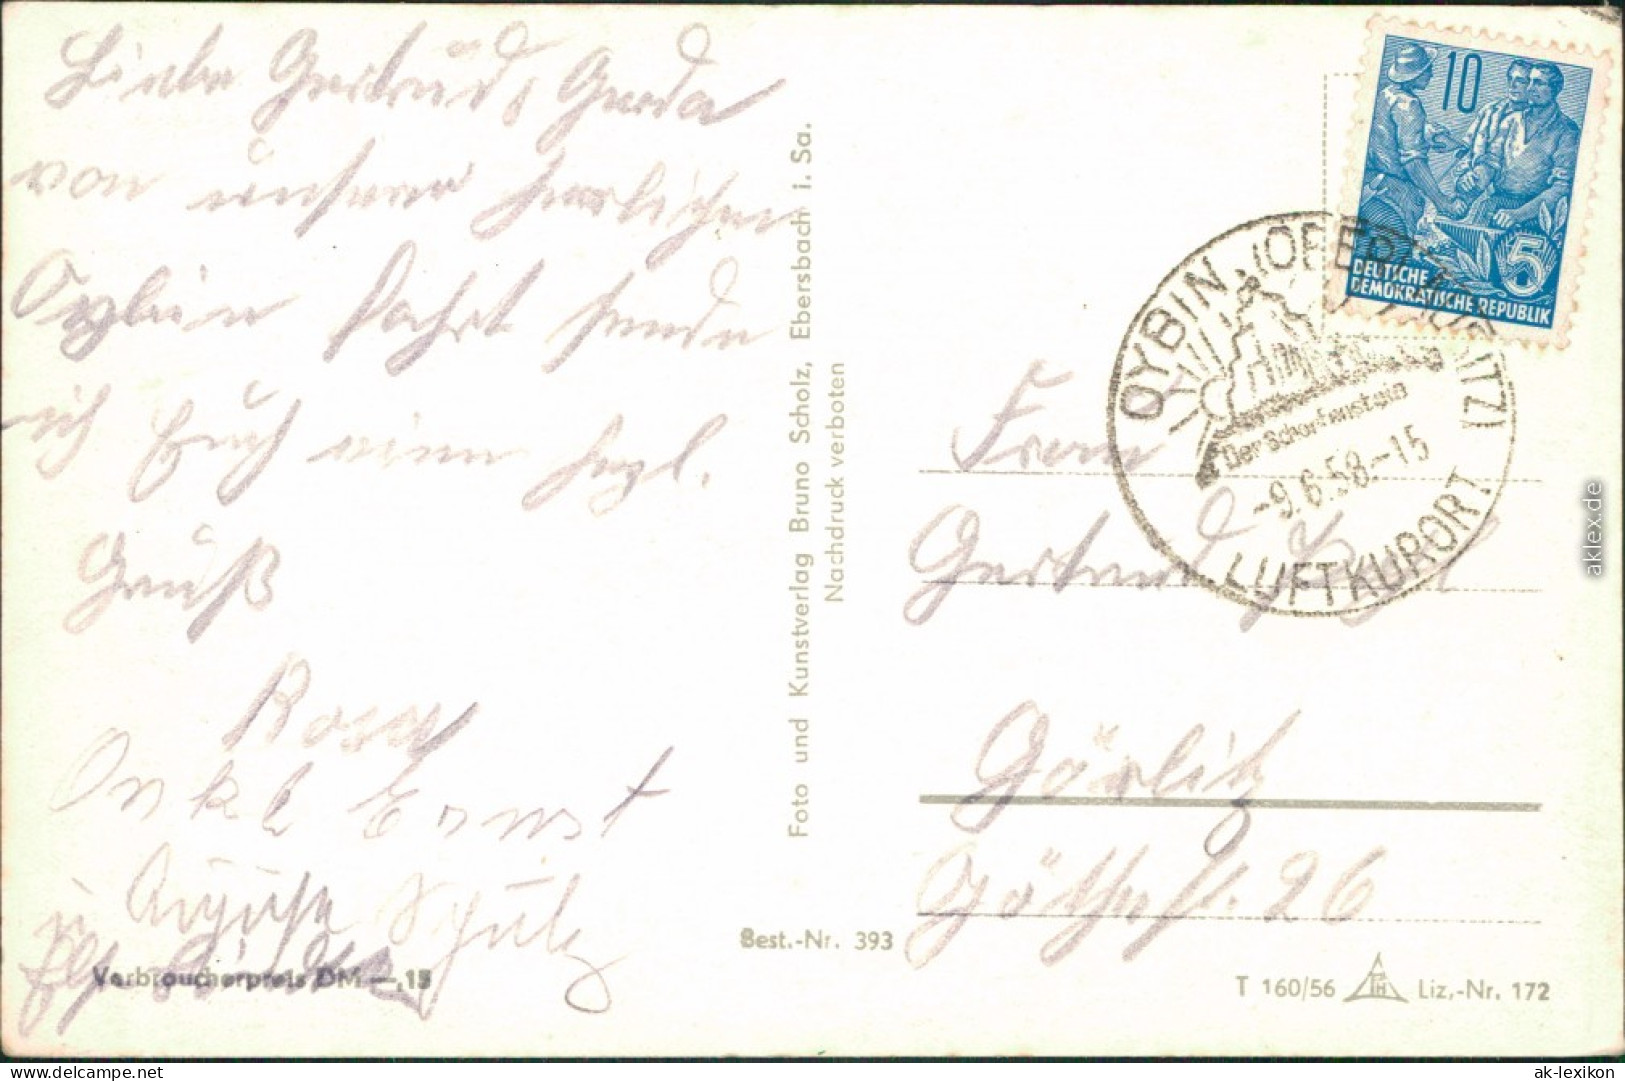 Liebe Gertrud, Gerda
von unserer herrlichen
Oybin fahrt sende
ich Euch einen hrzl.
Gruß
Rosa
Onkel Ernst
Auguste Schulz
u
Verbraucherpreis DM —,15
Foto und Kunstverlag Bruno Scholz, Ebersbach i. Sa.
Nachdruck verboten
Best.-Nr. 393
10
5
DEUTSCHE
DEMOKRATISCHE REPUBLIK
OYBIN (OBERLAUSITZ)
Der Scharfenstein
-9.6.58.-15
LUFTKURORT
Frau
Gertrud
Görlitz
Göthestr. 26
T 160/56 TH Liz.-Nr. 172
aklex.de
www.delcampe.net
ak-lexikon